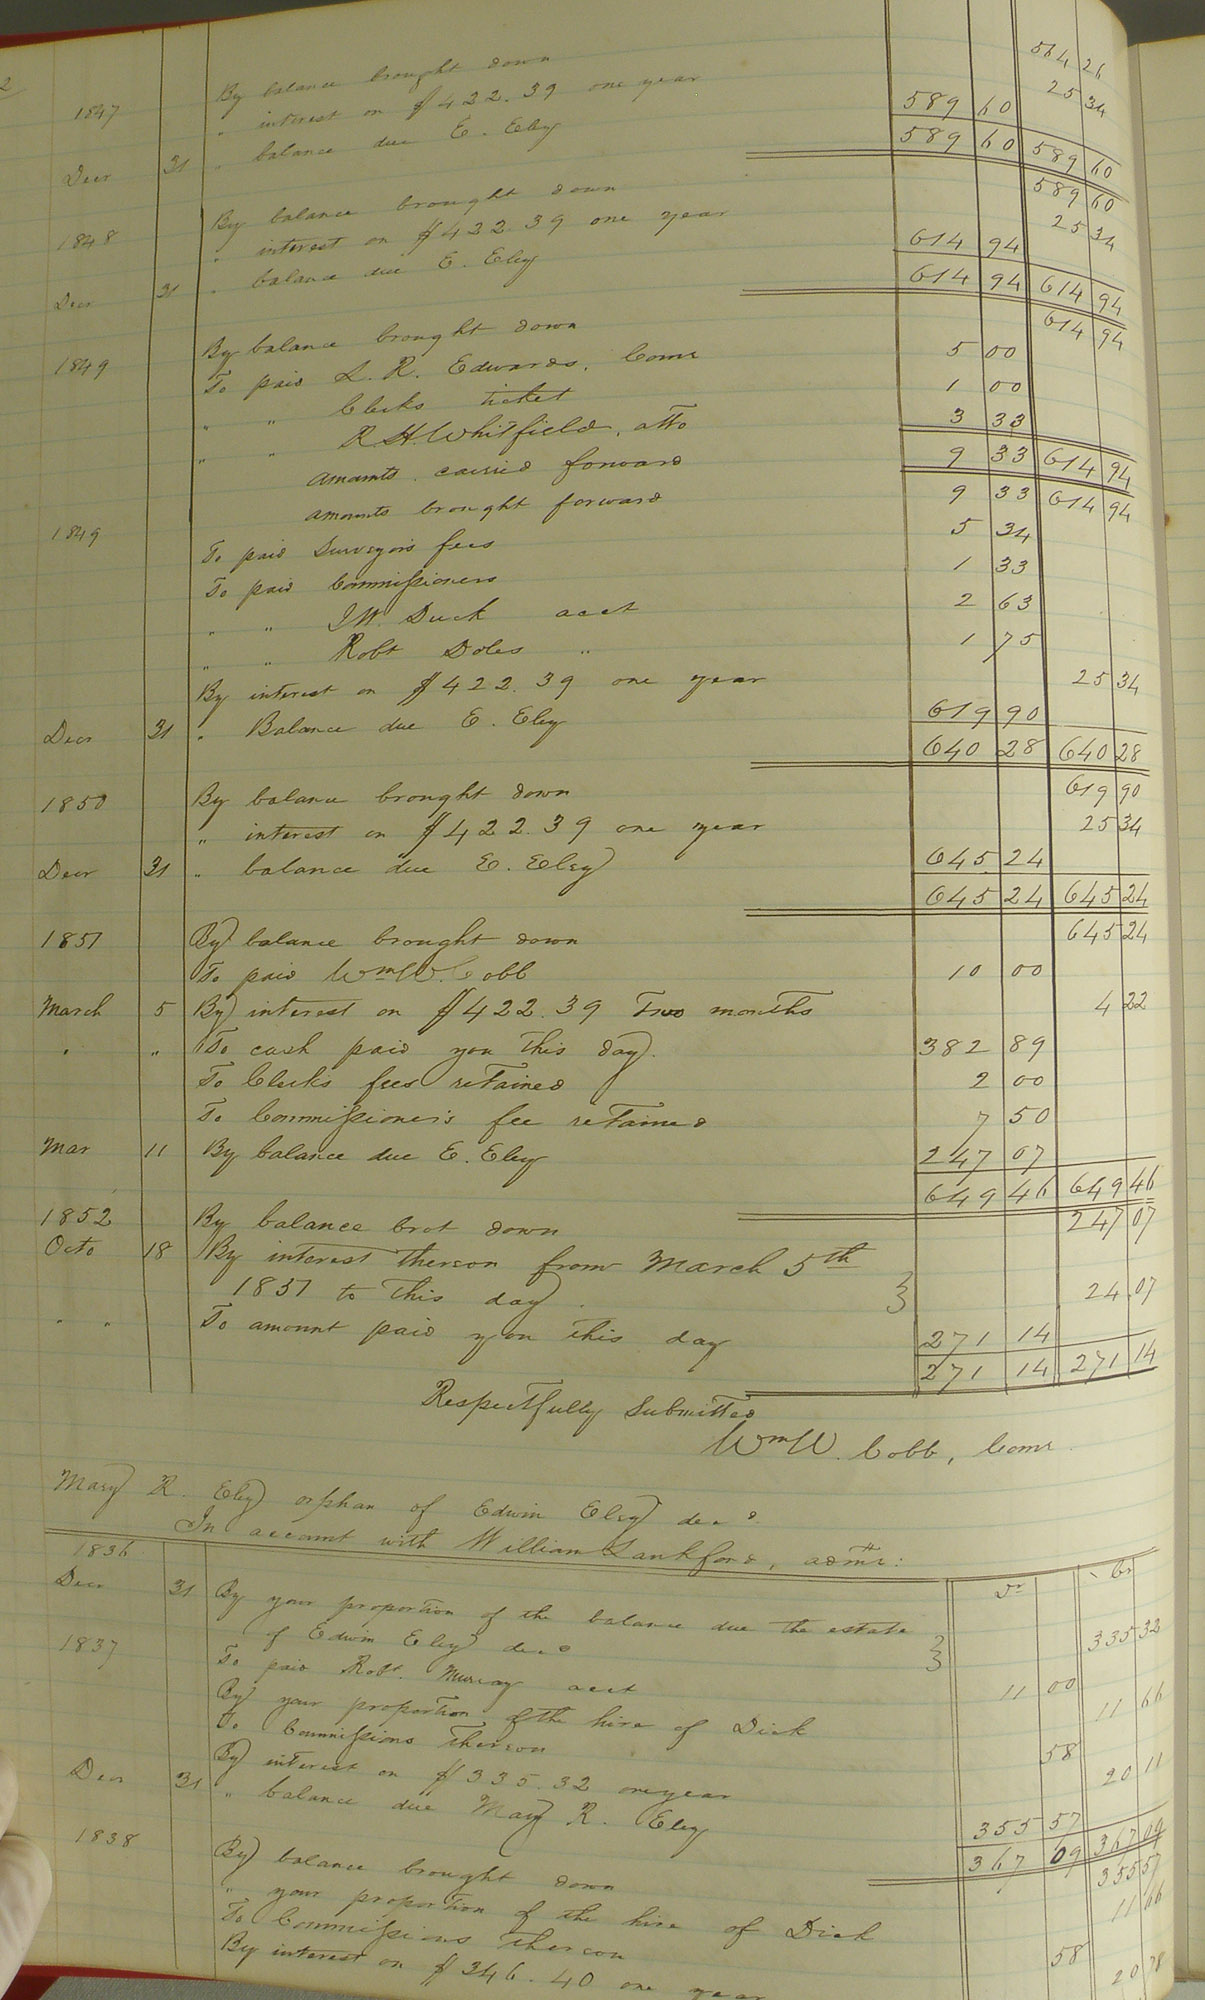 2
By balance brought down 564 26
1847 " interest on $422.39 one year 25 34
Decr 31 " balance due E. Eley 589 60
589 60 589 60
By balance brought down 589 60
1848 " interest on $422.39 one year 25 34
Decr 31 " balance due E. Eley 614 94
614 94 614 94
By balance brought down 614 94
1849 To paid L. R. Edwards, Comr 5 00
" " Clerks ticket 1 00
" " R. H. Whitfield, atto 3 33
amounts carried forward 9 33 614 94
amounts brought forward 9 33 614 94
1849 To paid Surveyors fees 5 34
To paid Commissioners 1 33
" " J. W. Duck acct 2 63
" " Robt Doles " 1 75
By interest on $422.39 one year 25 34
Decr 31 " Balance due E. Eley 619 90
640 28 640 28
1850 By balance brought down 619 90
" interest on $422.39 one year 25 34
Decr 31 " balance due E. Eley 645 24
645 24 645 24
1851 By balance brought down 645 24
To paid Wm W. Cobb 10 00
March 5 By interest on $422.39 Two months 4 22
" " To cash paid you this day. 382 89
To Clerks fees retained 2 00
To Commissioner's fee retained 7 50
Mar 11 By balance due E. Eley 247 07
649 46 649 46
1852 By balance brot down 247 07
Octo 18 By interest thereon from March 5th
1851 to this day. 24.07
" " To amount paid you this day 271 14
271 14 271 14
Respectfully Submitted
Wm W. Cobb, Comr.
Mary R. Eley orphan of Edwin Eley decd.
In account with William Lankford, admr:
1836 Dr Cr
Decr 31 By your proportion of the balance due the estate
of Edwin Eley decd 335 32
1837 To paid Robt. Murray acct 11 00
By your proportion of the hire of Dick 11 66
To Commissions thereon 58
By interest on $335.32 one year 20 11
Decr 31 " balance due Mary R. Eley 355 57
367 09 367 09
1838 By balance brought down 355 57
" your proportion of the hire of Dick 11 66
To Commissions thereon 58
By interest on $346.40 one year 20 78